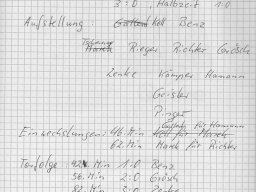 3:0, Halbzeit 1:0
Aufstellung: Keil Benz
Rieger Richter Grösch
Zenke Kämper Hamann
Geisler
Pinger
für Hamann
Einwechslungen: 46. Min Keil für Marek
62. Min Marek für Richter
Torfolge: 42. Min 1:0 Benz
56. Min 2:0 Grösch
82. Min 3:0 Zenke